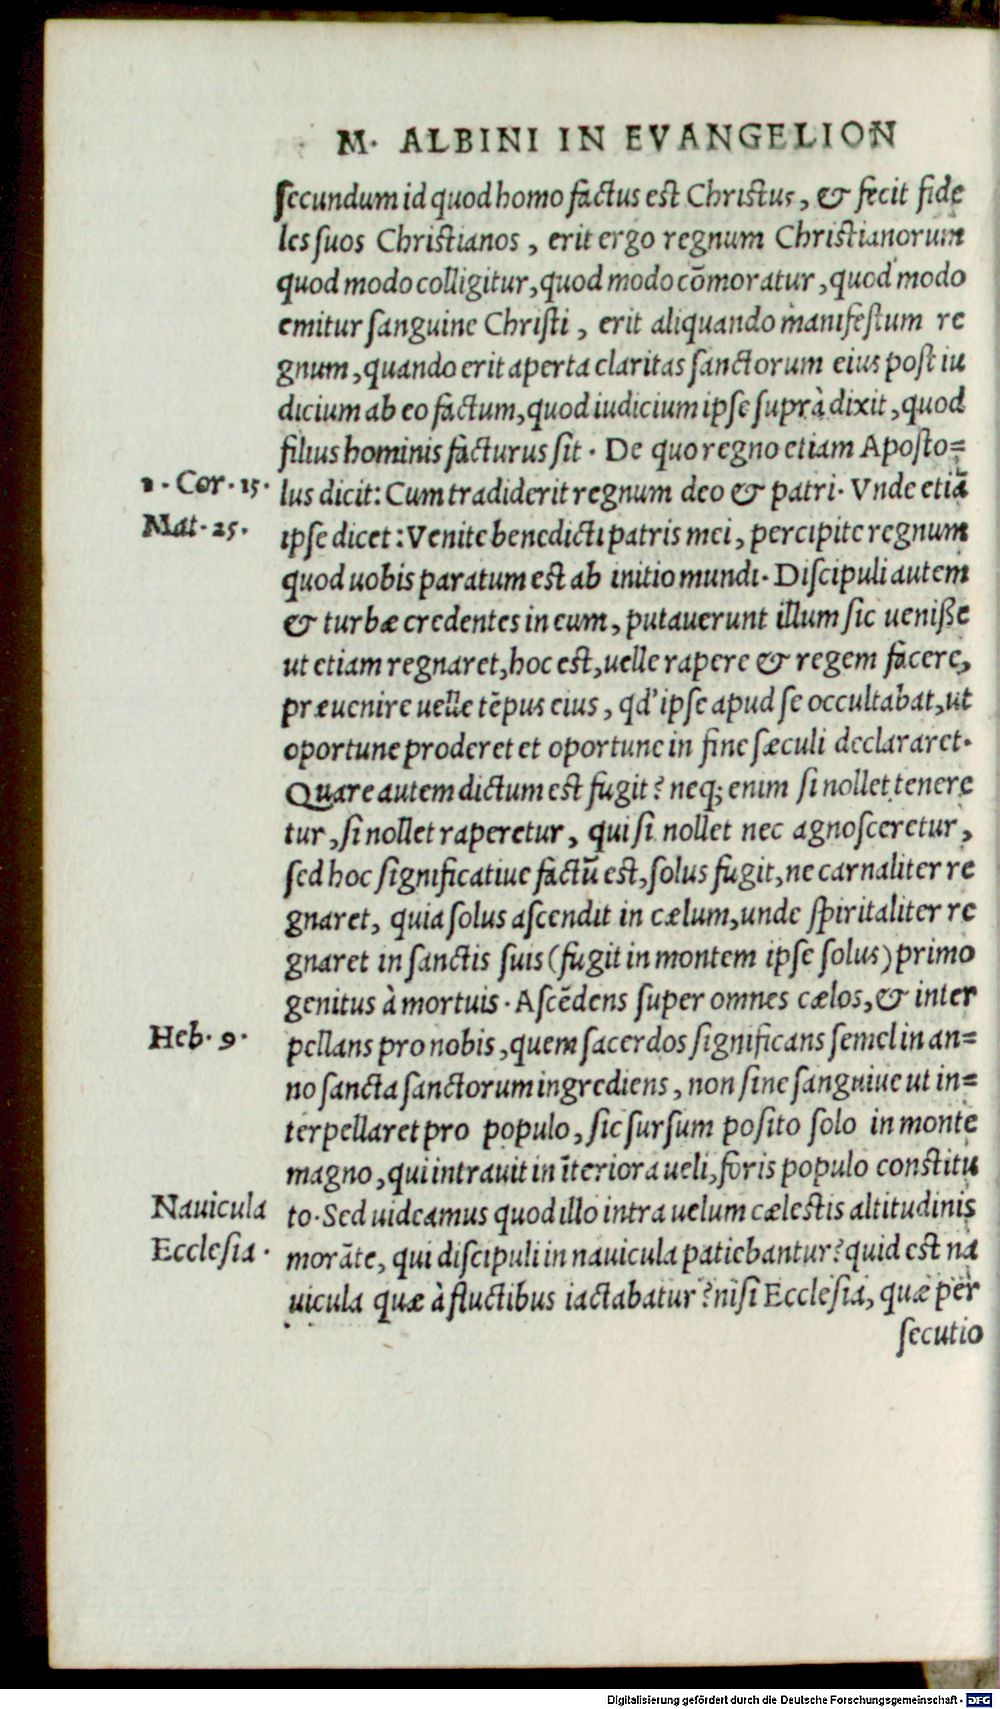 M. ALBINI IN EVANGELION
secundum id quod homo factus est Christus, & fecit fide
les suos Christianos, erit ergo regnum Christianorum
quod modo colligitur, quod modo cōmoratur, quod modo
emitur sanguine Christi, erit aliquando manifestum re
gnum, quando erit aperta claritas sanctorum eius post iu
dicium ab eo factum, quod iudicium ipse suprà dixit, quod
filius hominis facturus sit. De quo regno etiam Aposto=
1. Cor. 15.
lus dicit: Cum tradiderit regnum deo & patri. Vnde etiā
Mat. 25.
ipse dicet: Venite benedicti patris mei, percipite regnum
quod uobis paratum est ab initio mundi. Discipuli autem
& turbæ credentes in eum, putauerunt illum sic uenisse
ut etiam regnaret, hoc est, uelle rapere & regem facere,
præuenire uelle tēpus eius, qd' ipse apud se occultabat, ut
oportune proderet et oportune in fine sæculi declararet.
Quare autem dictum est fugit? neq; enim si nollet tenere
tur, si nollet raperetur, qui si nollet nec agnosceretur,
sed hoc significatiue factū est, solus fugit, ne carnaliter re
gnaret, quia solus ascendit in cælum, unde spiritaliter re
gnaret in sanctis suis (fugit in montem ipse solus) primo
genitus à mortuis. Ascēdens super omnes cælos, & inter
Heb. 9.
pellans pro nobis, quem sacerdos significans semel in an=
no sancta sanctorum ingrediens, non sine sanguiue ut in=
terpellaret pro populo, sic sursum posito solo in monte
magno, qui intrauit in īteriora ueli, foris populo constitu
Nauicula
to. Sed uideamus quod illo intra uelum cælestis altitudinis
Ecclesia.
morāte, qui discipuli in nauicula patiebantur? quid est na
uicula quæ à fluctibus iactabatur? nisi Ecclesia, quæ per
secutio
Digitalisierung gefördert durch die Deutsche Forschungsgemeinschaft - DFG